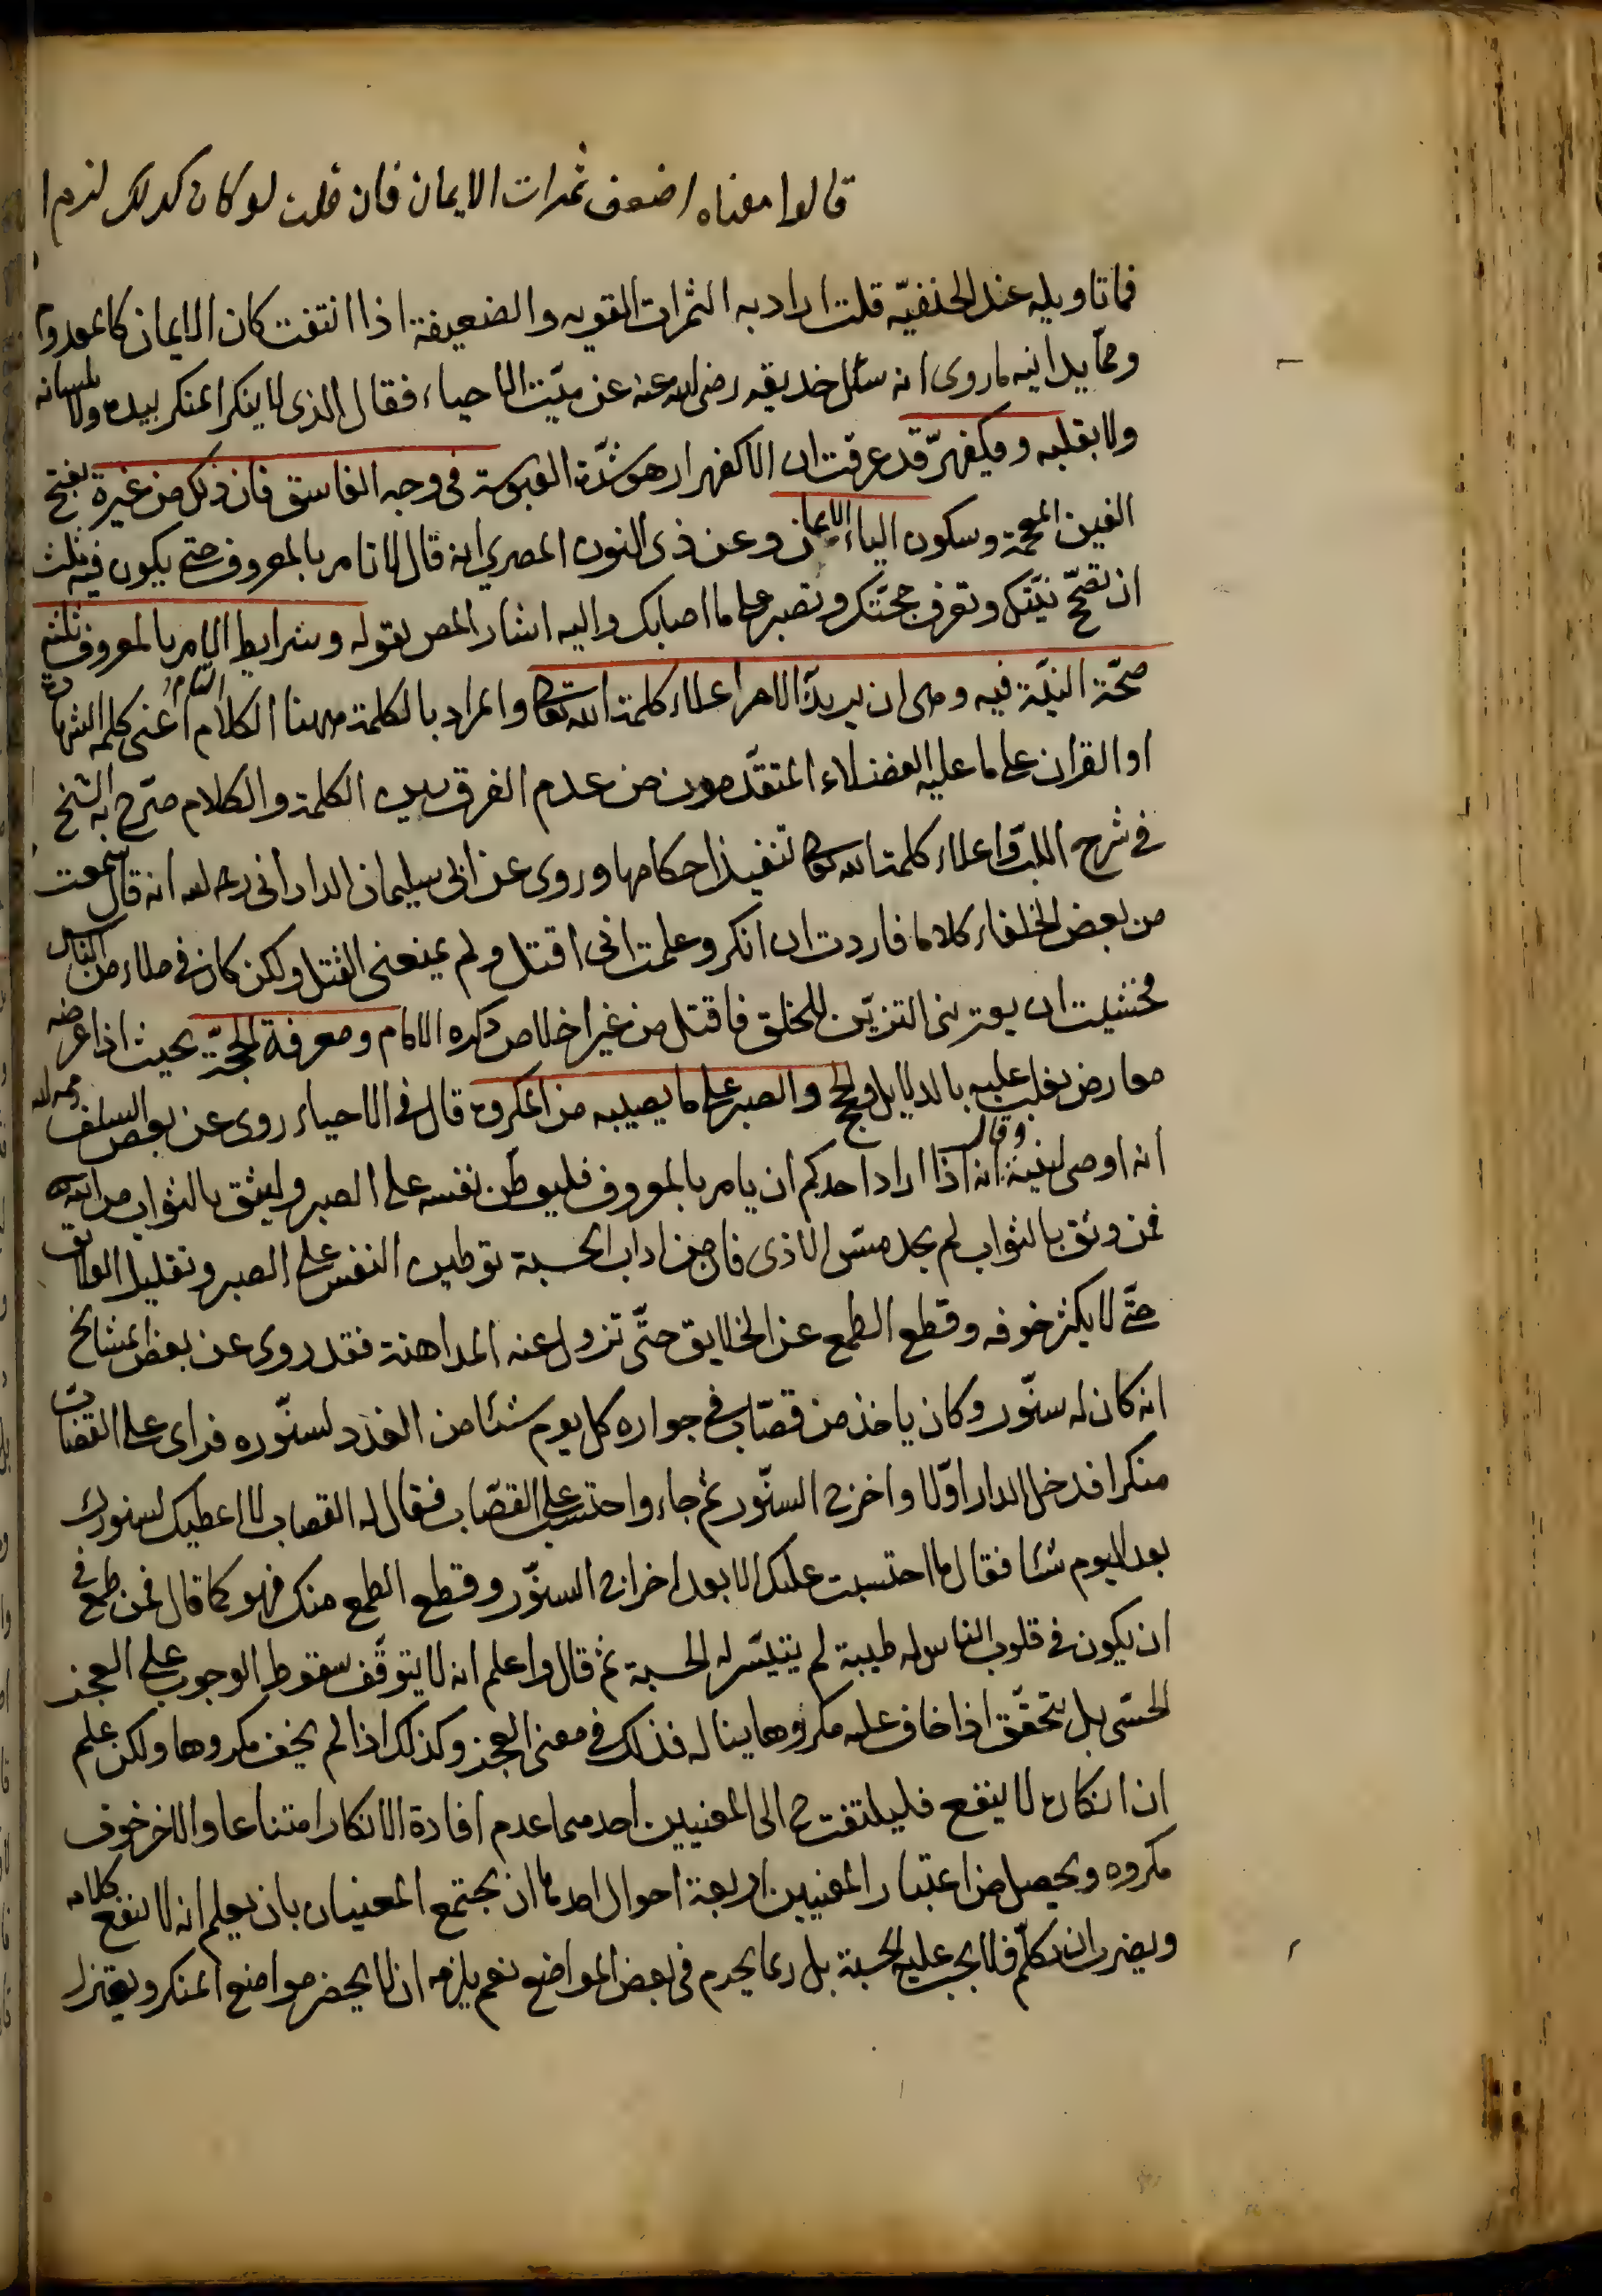 قالوا معناه اضعف ثمرات الايمان فان قلت لو كان كذلك لزم ا
فما تاويله عند الحنفيّه قلت اراد به الثمرات القويه والضعيفة اذا انتفت كان الايمان كالمعدوم
وممّا يدانيه ما روى انه سئل حذيفه رضى الله عنه عن ميّت الاحياء فقال الذى لا ينكر المنكر بيده ولا بلسانه
ولا بقلبه وفيكفهرّ قد عرفت ان الاكفهرار هو شدّة العبوسة فى وجه الفاسق فان ذلك من غيرة بفتح
الغين المعجمة وسكون الياء الايمان وعن ذى النون المصري انه قال لا تامر بالمعروف حتى يكون فيه ثلث
ان تصحّ نيّتك وتعرف حجّتك وتصبر على ما اصابك واليه اشار المص بقوله وشرايط الامر بالمعروف ثلثة
صحّة النيّة فيه وهى ان يريد الامر اعلاء كلمة الله تعالى والمراد بالكلمة ههنا الكلام التام اعنى كلمه الشهادة
او القران على ما عليه الفضلاء المتقدّمون من عدم الفرق بين الكلمة والكلام صرّح به الشيخ
فى شرح اللبّ واعلاء كلمة الله تعالى تنفيذ احكامها وروى عن ابى سليمان الدارانى رحمه الله انه قال سمعت
من بعض الخلفاء كلاما فاردت ان انكر وعلمت انى اقتل ولم يمنعنى القتل ولكن كان فى ملاء من الناس
فخشيت ان يعترينى التزيّن للخلق فاقتل من غير اخلاص ذكره الامام ومعرفة الحجّة بحيث اذا عرضه
معارض يغلب عليه بالدلايل والحجج والصبر على ما يصيبه من المكروه قال فى الاحياء روى عن بعض السلف رحمهم الله
انه اوصى لبنيه وقال انه اذا اراد احدكم ان يامر بالمعروف فليوطّن نفسه على الصبر وليثق بالثواب من الله
فمن وثق بالثواب لم يجد مسّ الاذى فاذن من اداب الحسبة توطين النفس على الصبر وتقليل العلايق
حتّى لا يكثر خوفه وقطع الطمع عن الخلايق حتّى تزول عنه المداهنة فقد روى عن بعض المشايخ
انه كان له سنّور وكان ياخذ من قصّاب فى جواره كل يوم شئا من الغدد لسنّوره فراى على القصّاب
منكرا فدخل الدار اوّلا واخرج السنّور ثم جاء واحتسب على القصّاب فقال له القصاب لا اعطيك لسنورك
بعد اليوم شئا فقال ما احتسبت عليك الا بعد اخراج السنّور وقطع الطمع منك فهو كما قال فمن طمع فى
ان يكون فى قلوب الناس له طيبة لم يتيسّر له الحسبة ثم قال واعلم انه لا يتوقّف سقوط الوجوب على العجز
الحسّى بل يتحقّق اذا خاف عليه مكروها يناله فذلك فى معنى العجز وكذلك اذا لم يخف مكروها ولكن علم
ان انكاره لا ينفع فليلتفت ح الى المعنيين احدهما عدم افادة الانكار امتناعا والاخر خوف
مكروه ويحصل من اعتبار المعنيين اربعة احوال احدها ان يجتمع المعنيان بان يعلم انه لا ينفع كلامه
ويضرب ان تكلّم فلا يجب عليه الحسبة بل ربما يحرم فى بعض المواضع نعم يلزمه ان لا يحضر مواضع المنكر ويعتزل